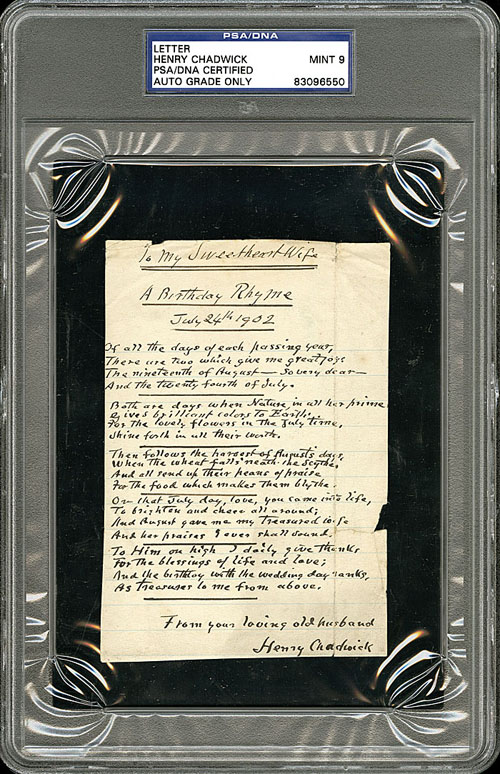 PSA/DNA
LETTER
HENRY CHADWICK
PSA/DNA CERTIFIED
AUTO GRADE ONLY
MINT 9
83096550
To My Sweetheart Wife
A Birthday Rhyme
July 24th 1902
Of all the days of each passing year,
There are two which give me great joy:
The nineteenth of August — so very dear —
And the twenty fourth of July.
Both are days when Nature, in all her prime
Gives brilliant colors to Earth.
For the lovely flowers in the July time,
Shine forth in all their worth.
Then follows the harvest of August's days,
When the wheat falls 'neath the scythe,
And all send up their paeans of praise
For the food which makes them blythe.
On that July day, love, you came into life,
To brighten and cheer all around;
And August gave me my Treasured wife
And her praises I ever shall sound.
To Him on high I daily give thanks
For the blessings of life and love;
And the birthday with the wedding day ranks,
As Treasures to me from above.
From your loving old husband
Henry Chadwick